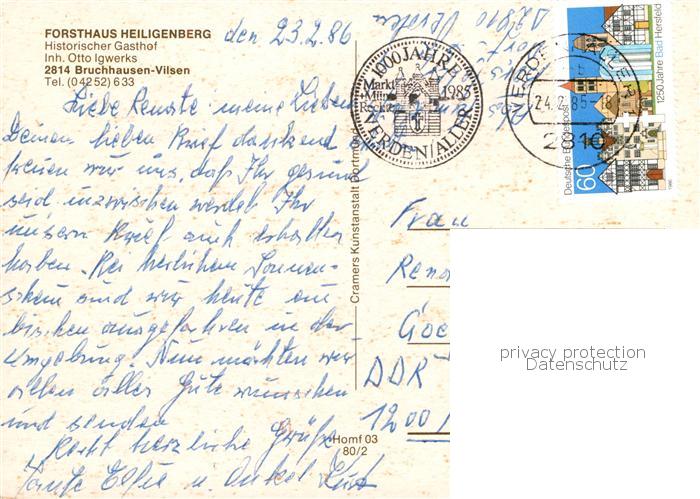 FORSTHAUS HEILIGENBERG
Historischer Gasthof
Inh. Otto Igwerks
2814 Bruchhausen-Vilsen
Tel. (0 42 52) 6 33
den 23.2.86
Liebe Renate, meine Lieben
Deinen lieben Brief dankend
freuen wir uns, daß Ihr gesund
seid. inzwischen werdet Ihr
unsern Brief auch erhalten
haben. Bei herlichem Sonnen-
schein sind wir heute ein
bischen ausgefahren in der
Umgebung. Nun möchten wir
allen alles Gute wünschen
und senden
Recht herzliche Grüße
Tante Elsie u. Onkel Kurt
Absender
D2810 Verden
1000 JAHRE
Markt
Münz
Recht
1985
VERDEN/ALLER
VERDEN, ALLER
24.2.86-18
2810
Deutsche Bundespost
60
1250 Jahre Bad Hersfeld
Cramers Kunstanstalt Dortmund
Homf 03
80/2
Frau
Rena
Goe
DDR
1200
privacy protection
Datenschutz